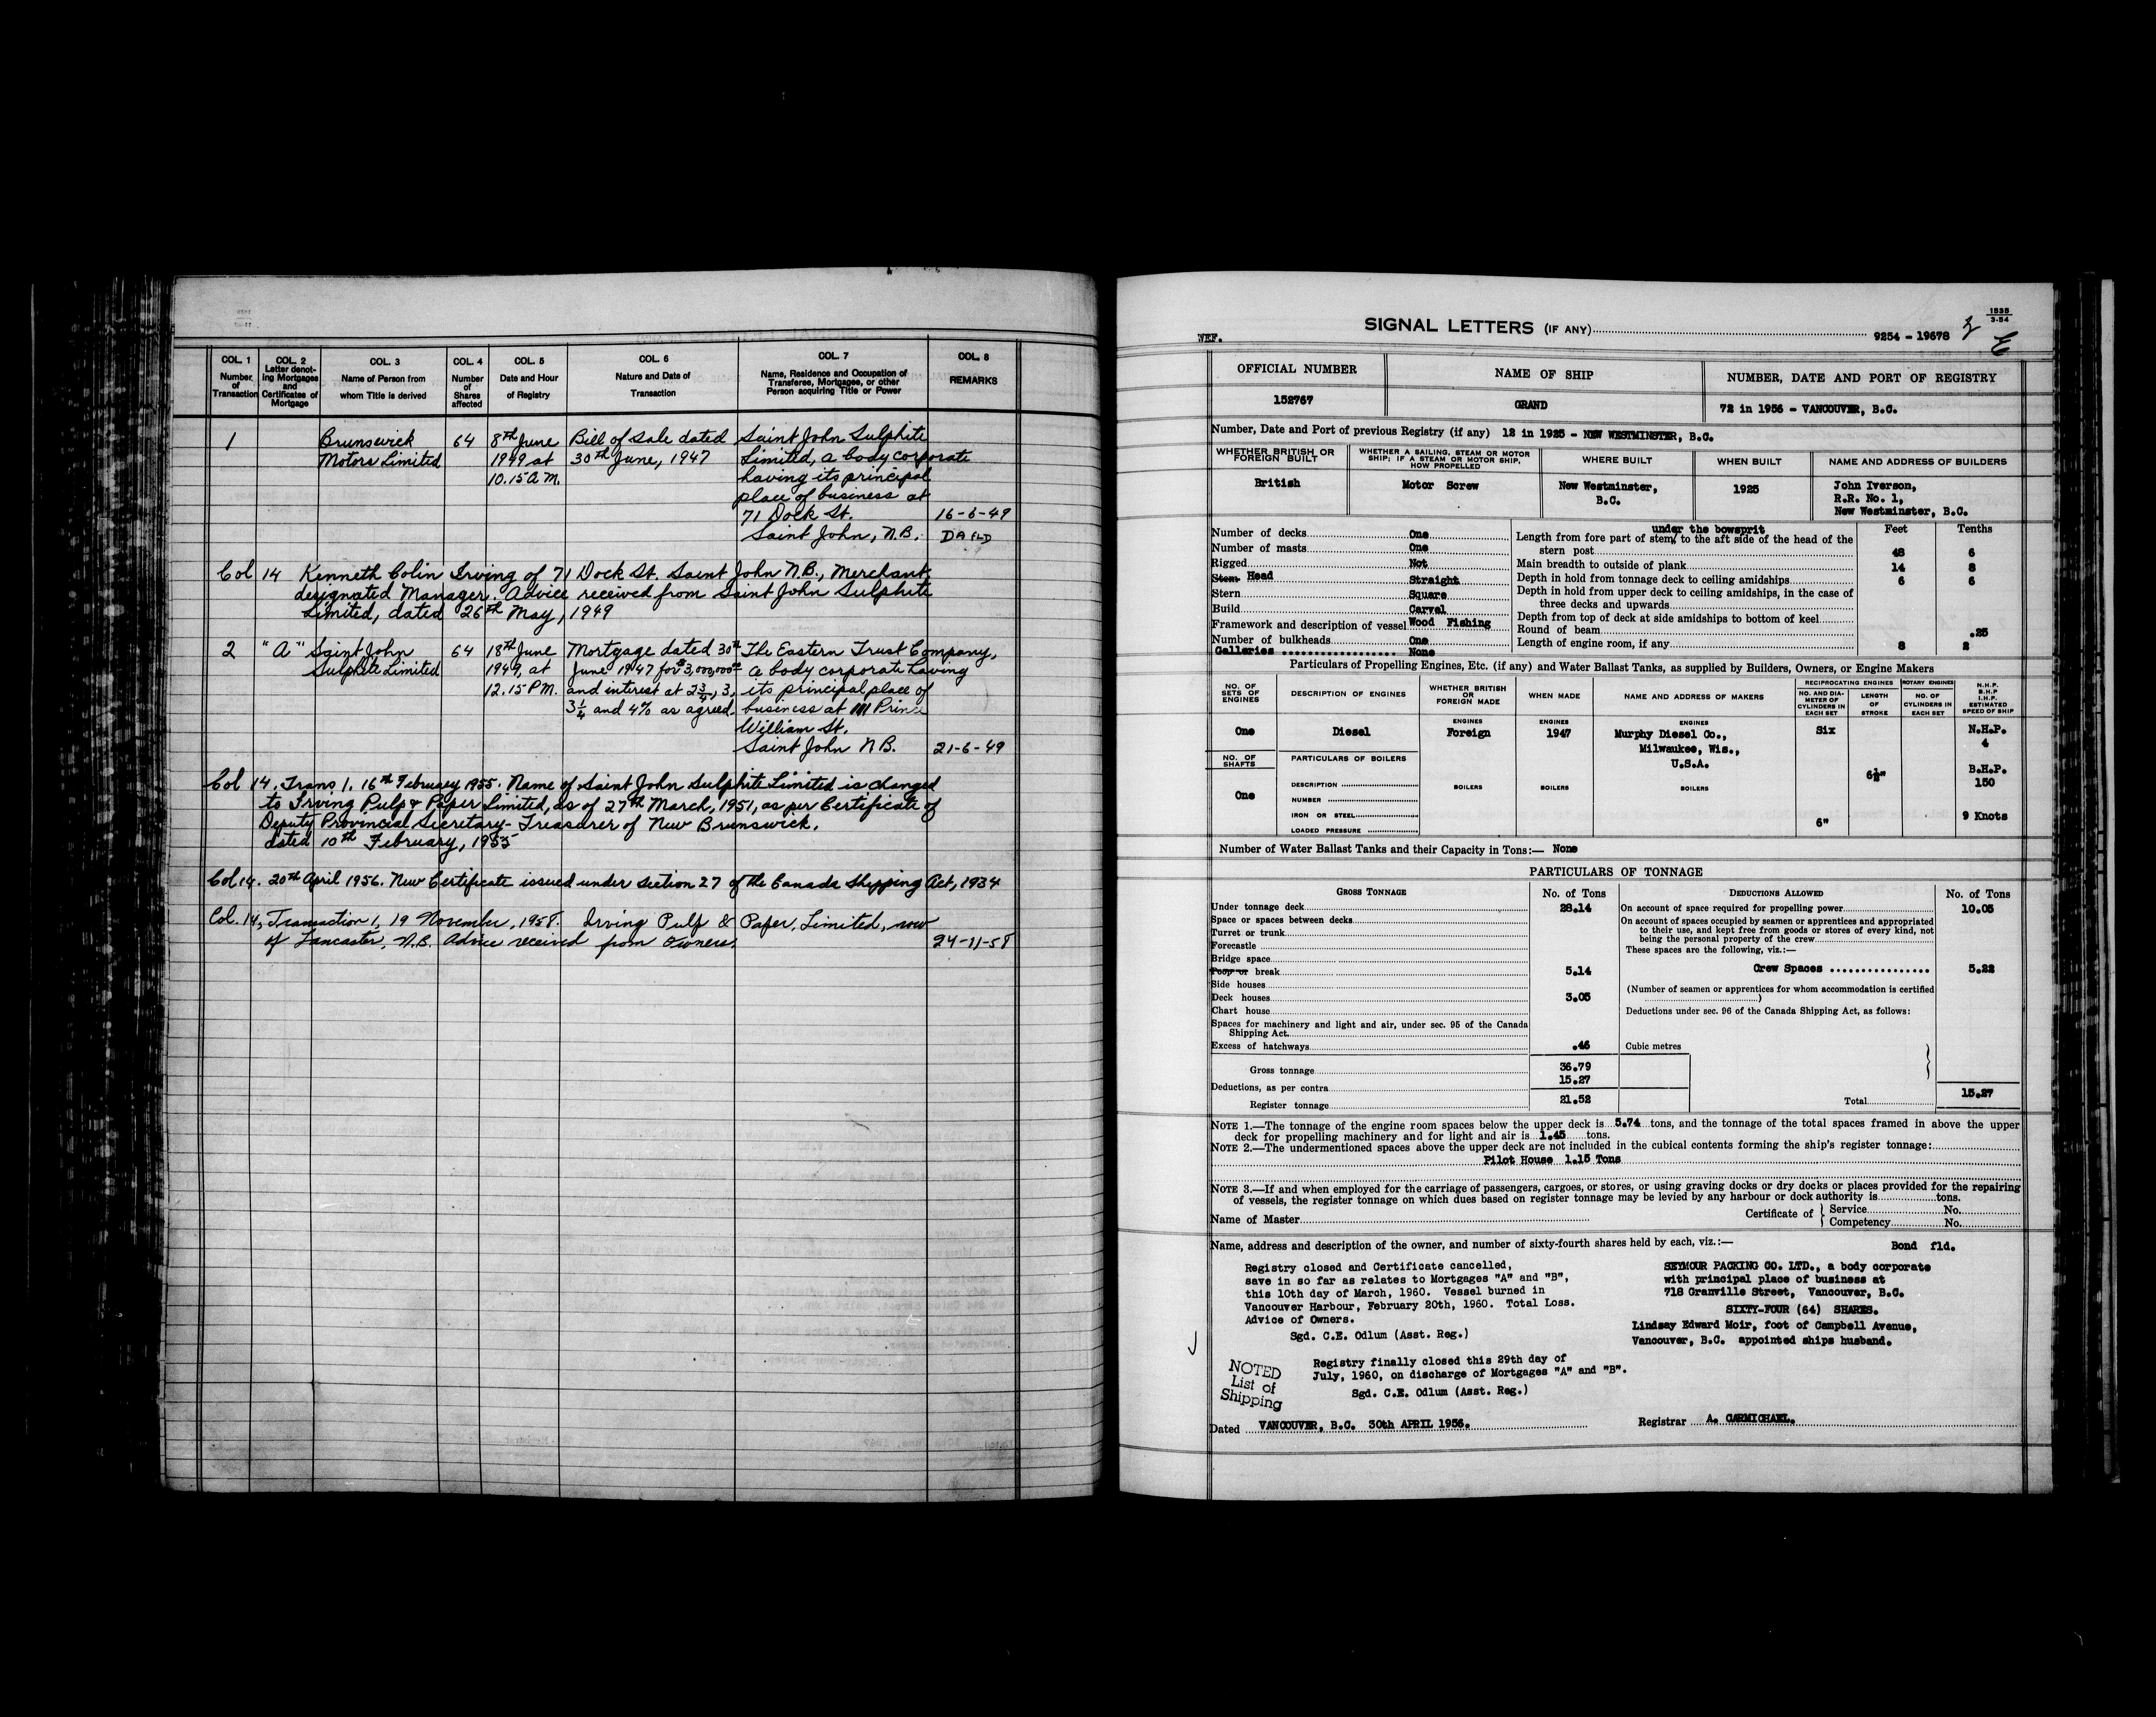 COL. 1
Number
of
Transaction
COL. 2
Letter denot-
ing Mortgages
and
Certificates of
Mortgage
COL. 3
Name of Person from
whom Title is derived
COL. 4
Number
of
Shares
affected
COL. 5
Date and Hour
of Registry
COL. 6
Nature and Date of
Transaction
COL. 7
Name, Residence and Occupation of
Transferee, Mortgagee, or other
Person acquiring Title or Power
COL. 8
REMARKS
1 Brunswick 64 8th June Bill of Sale dated Saint John Sulphite
Motors Limited 1949 at 30th June, 1947 Limited, a body corporate
10.15 A.M. having its principal
place of business at
71 Dock St. 16-6-49
Saint John, N.B. DA FLD
Col 14 Kenneth Colin Irving of 71 Dock St. Saint John N.B., Merchant
designated Manager. Advice received from Saint John Sulphite
Limited, dated 26th May, 1949
2 "A" Saint John 64 18th June Mortgage dated 30th The Eastern Trust Company,
Sulphite Limited 1949, at June 1947 for $3,000,000 a body corporate having
12.15 P.M. and interest at 2 3/4, 3, its principal place of
3 1/4 and 4% as agreed. business at 111 Prince
William St.
Saint John N.B. 21-6-49
Col 14. Trans 1. 16th February 1955. Name of Saint John Sulphite Limited is changed
to Irving Pulp & Paper Limited, as of 27th March, 1951, as per Certificate of
Deputy Provincial Secretary-Treasurer of New Brunswick.
dated 10th February, 1955
Col 14. 20th April 1956. New Certificate issued under Section 27 of the Canada Shipping Act, 1934
Col. 14, Transaction 1, 19 November, 1958. Irving Pulp & Paper, Limited, now
of Lancaster, N.B. Advice received from Owners. 24-11-58
1535
3-54
SIGNAL LETTERS (IF ANY)
WEF.
9254 - 19678
OFFICIAL NUMBER
152767
NAME OF SHIP
GRAND
NUMBER, DATE AND PORT OF REGISTRY
72 in 1956 - VANCOUVER, B.C.
Number, Date and Port of previous Registry (if any) 12 in 1925 - NEW WESTMINSTER, B.C.
WHETHER BRITISH OR
FOREIGN BUILT
British
WHETHER A SAILING, STEAM OR MOTOR
SHIP; IF A STEAM OR MOTOR SHIP,
HOW PROPELLED
Motor Screw
WHERE BUILT
New Westminster,
B.C.
WHEN BUILT
1925
NAME AND ADDRESS OF BUILDERS
John Iverson,
R.R. No. 1,
New Westminster, B.C.
Number of decks One
Number of masts One
Rigged Not
Stem Head Straight
Stern Square
Build Carvel
Framework and description of vessel Wood Fishing
Number of bulkheads One
Galleries None
Feet Tenths
under the bowsprit
Length from fore part of stem, to the aft side of the head of the
stern post 48 6
Main breadth to outside of plank 14 8
Depth in hold from tonnage deck to ceiling amidships 6 6
Depth in hold from upper deck to ceiling amidships, in the case of
three decks and upwards
Depth from top of deck at side amidships to bottom of keel
Round of beam .25
Length of engine room, if any 8 2
Particulars of Propelling Engines, Etc. (if any) and Water Ballast Tanks, as supplied by Builders, Owners, or Engine Makers
NO. OF
SETS OF
ENGINES
One
NO. OF
SHAFTS
One
DESCRIPTION OF ENGINES
Diesel
PARTICULARS OF BOILERS
DESCRIPTION
NUMBER
IRON OR STEEL
LOADED PRESSURE
WHETHER BRITISH
OR
FOREIGN MADE
ENGINES
Foreign
BOILERS
WHEN MADE
ENGINES
1947
BOILERS
NAME AND ADDRESS OF MAKERS
ENGINES
Murphy Diesel Co.,
Milwaukee, Wis.,
U.S.A.
BOILERS
RECIPROCATING ENGINES
NO. AND DIA-
METER OF
CYLINDERS IN
EACH SET
Six
6"
LENGTH
OF
STROKE
6½"
ROTARY ENGINES
NO. OF
CYLINDERS IN
EACH SET
N.H.P.
B.H.P.
I.H.P.
ESTIMATED
SPEED OF SHIP
N.H.P.
4
B.H.P.
150
9 Knots
Number of Water Ballast Tanks and their Capacity in Tons:— None
PARTICULARS OF TONNAGE
GROSS TONNAGE No. of Tons
Under tonnage deck 28.14
Space or spaces between decks
Turret or trunk
Forecastle
Bridge space
Poop or break 5.14
Side houses
Deck houses 3.05
Chart house
Spaces for machinery and light and air, under sec. 95 of the Canada
Shipping Act
Excess of hatchways .46
Gross tonnage 36.79
15.27
Deductions, as per contra
Register tonnage 21.52
DEDUCTIONS ALLOWED No. of Tons
On account of space required for propelling power 10.05
On account of spaces occupied by seamen or apprentices and appropriated
to their use, and kept free from goods or stores of every kind, not
being the personal property of the crew
These spaces are the following, viz.:—
Crew Spaces 5.22
(Number of seamen or apprentices for whom accommodation is certified
)
Deductions under sec. 96 of the Canada Shipping Act, as follows:
Cubic metres
Total 15.27
NOTE 1.—The tonnage of the engine room spaces below the upper deck is 5.74 tons, and the tonnage of the total spaces framed in above the upper
deck for propelling machinery and for light and air is 1.45 tons.
NOTE 2.—The undermentioned spaces above the upper deck are not included in the cubical contents forming the ship's register tonnage:
Pilot House 1.15 Tons
NOTE 3.—If and when employed for the carriage of passengers, cargoes, or stores, or using graving docks or dry docks or places provided for the repairing
of vessels, the register tonnage on which dues based on register tonnage may be levied by any harbour or dock authority is tons.
Name of Master
Certificate of { Service No.
Competency No.
Name, address and description of the owner, and number of sixty-fourth shares held by each, viz.:—
Bond fld.
Registry closed and Certificate cancelled,
save in so far as relates to Mortgages "A" and "B",
this 10th day of March, 1960. Vessel burned in
Vancouver Harbour, February 20th, 1960. Total Loss.
Advice of Owners.
Sgd. C.E. Odlum (Asst. Reg.)
SEYMOUR PACKING CO. LTD., a body corporate
with principal place of business at
718 Granville Street, Vancouver, B.C.
SIXTY-FOUR (64) SHARES.
Lindsay Edward Moir, foot of Campbell Avenue,
Vancouver, B.C. appointed ships husband.
NOTED
List of
Shipping
Registry finally closed this 29th day of
July, 1960, on discharge of Mortgages "A" and "B".
Sgd. C.E. Odlum (Asst. Reg.)
Dated VANCOUVER, B.C. 30th APRIL 1956.
Registrar A. CARMICHAEL.